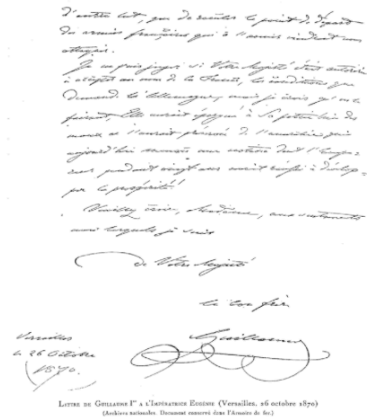 d'autre but, que de reculer le point de départ
des armées françaises qui à l'avenir viendront nous
attaquer.
Je ne puis juger si Votre Majesté était autorisée
à accepter au nom de la France, les conditions que
demande l'Allemagne, mais je crois qu'en le
faisant, Elle aurait épargné à Sa patrie bien des
maux et l'aurait préservé de l'anarchie qui
aujourd'hui menace une nation dont l'Empereur
pendant vingt ans avait réussi à développer
la prospérité!
Veuillez croire, Madame, aux sentiments
avec lesquels je suis
de Votre Majesté
le bon frère
Guillaume
Versailles
le 26 Octobre
1870.
LETTRE DE GUILLAUME Ier A L'IMPÉRATRICE EUGÉNIE (Versailles, 26 octobre 1870)
(Archives nationales. Document conservé dans l'Armoire de fer.)